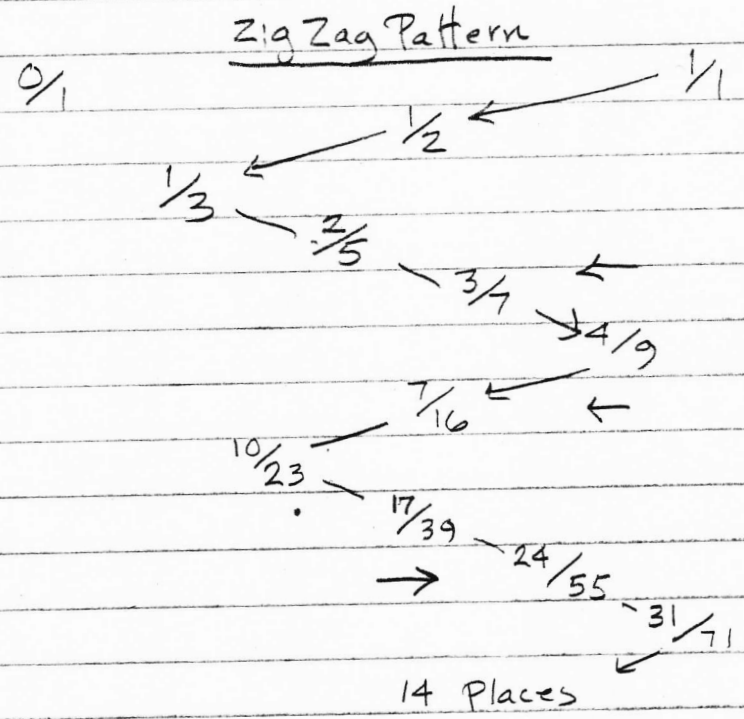 Zig Zag Pattern
0/1 1/1
1/2
1/3
2/5
3/7
4/9
7/16
10/23
17/39
24/55
31/71
14 Places